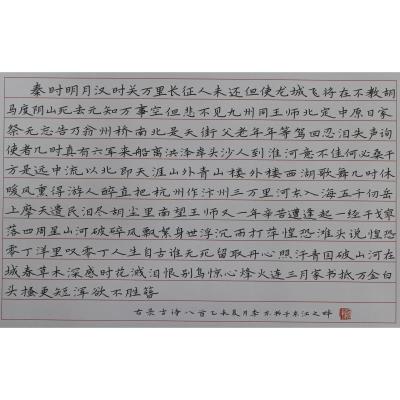 秦时明月汉时关万里长征人未还但使龙城飞将在不教胡
马度阴山死去元知万事空但悲不见九州同王师北定中原日家
祭无忘告乃翁州桥南北是天街父老年年等驾回忍泪失声询
使者几时真有六军来船离洪泽岸头沙人到淮河意不佳何必桑干
方是远中流以北即天涯山外青山楼外楼西湖歌舞几时休
暖风熏得游人醉直把杭州作汴州三万里河东入海五千仞岳
上摩天遗民泪尽胡尘里南望王师又一年辛苦遭逢起一经干戈寥
落四周星山河破碎风飘絮身世浮沉雨打萍惶恐滩头说惶恐
零丁洋里叹零丁人生自古谁无死留取丹心照汗青国破山河在
城春草木深感时花溅泪恨别鸟惊心烽火连三月家书抵万金白
头搔更短浑欲不胜簪
古景古诗八首乙长夏月李 书于东江之畔